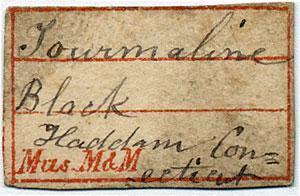 Tourmaline
Black
Haddam Con=
necticut
Mus. M&M